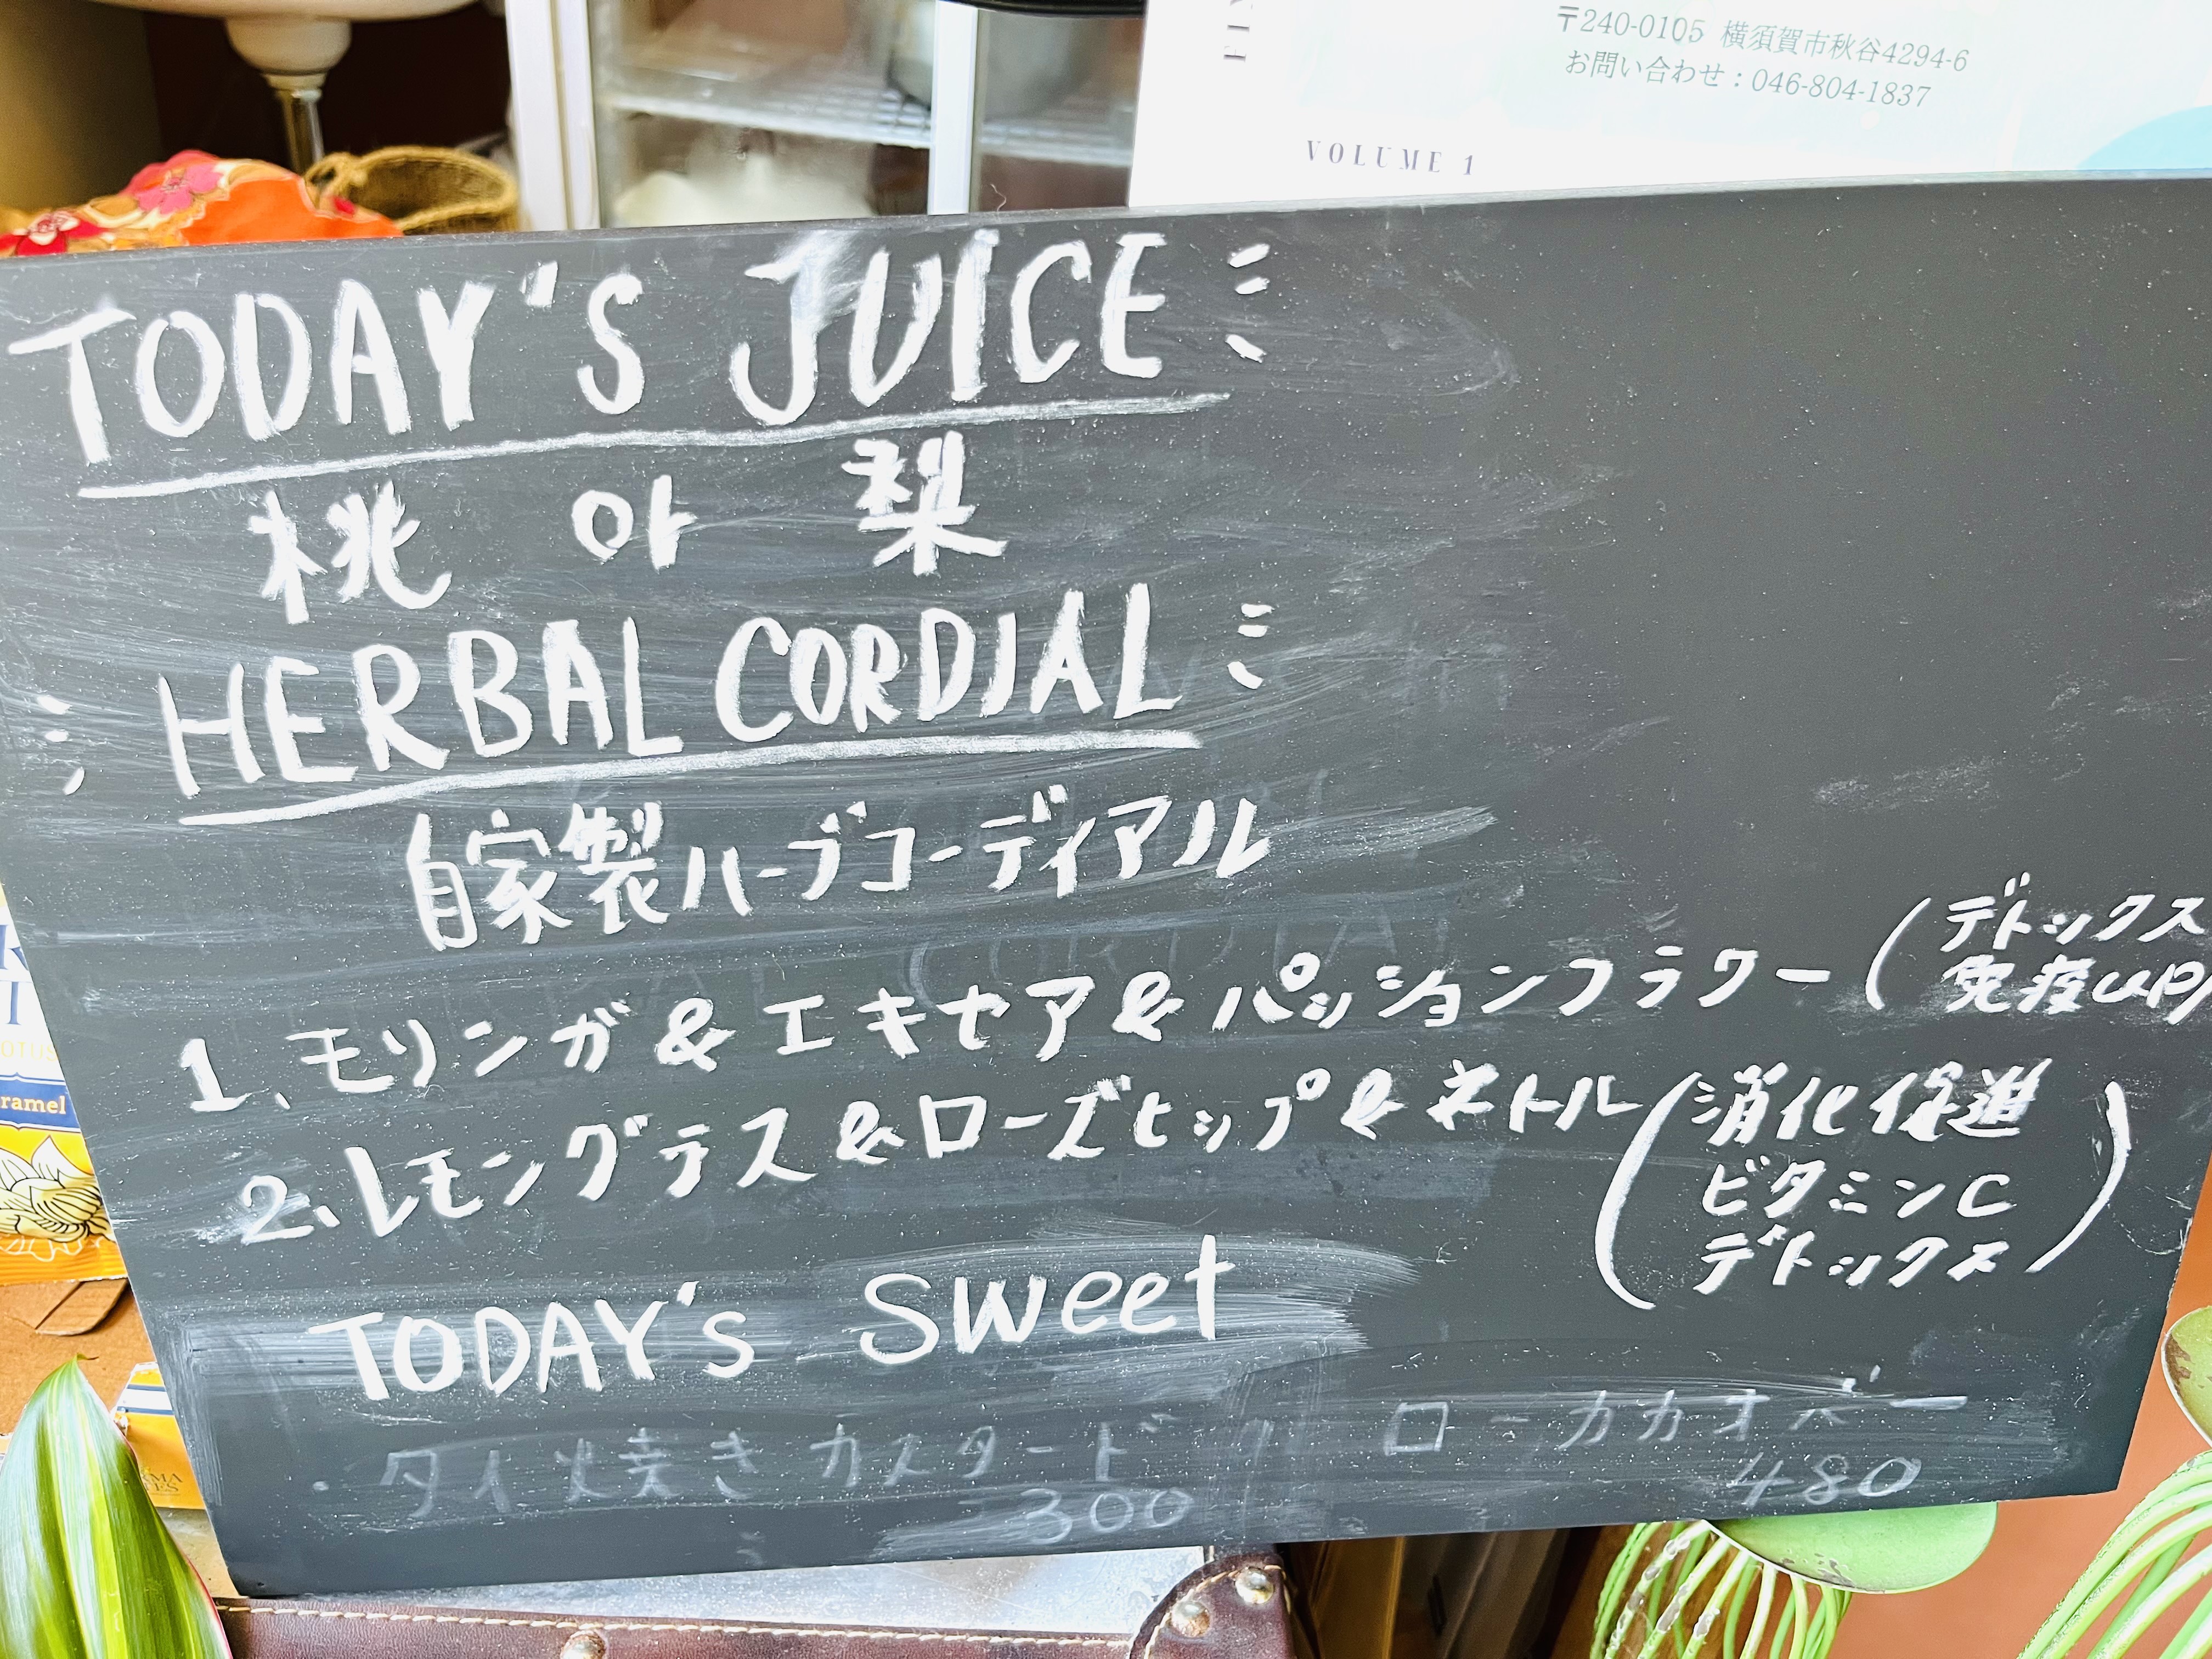 〒240-0105 横須賀市秋谷4294-6
お問い合わせ：046-804-1837
VOLUME 1
TODAY'S JUICE
桃 or 梨
HERBAL CORDIAL
自家製ハーブコーディアル
1、モリンガ&エキセア&パッションフラワー(デトックス
免疫UP)
2、レモングラス&ローズヒップ&ネトル(消化促進
ビタミンC
デトックス)
TODAY's Sweet
・タイ焼き カスタード
300
ローカカオバー
480
ramel